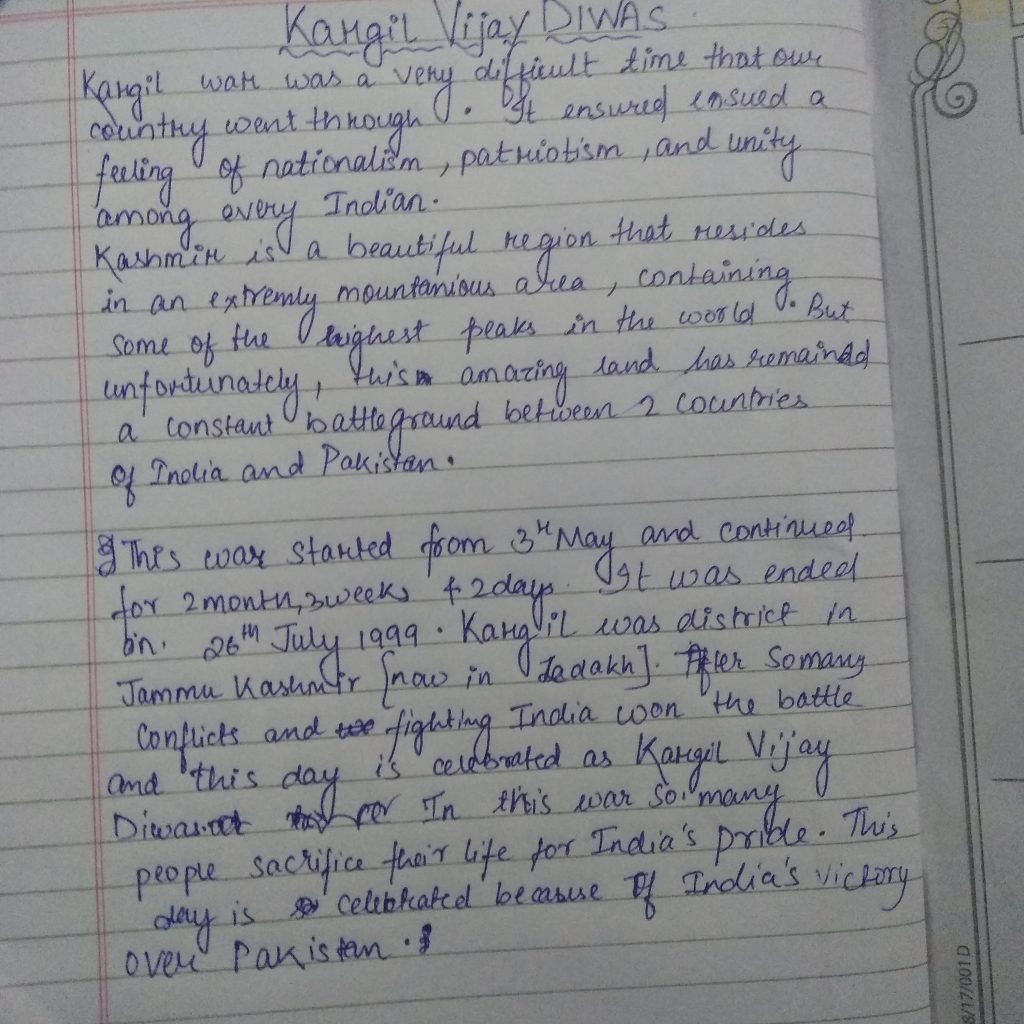 Kargil Vijay DIWAS
Kargil war was a very difficult time that our
country went through. It ensured ensued a
feeling of nationalism, patriotism, and unity
among every Indian.
Kashmir is a beautiful region that resides
in an extremly mountanious area, containing
some of the highest peaks in the world. But
unfortunately, this amazing land has remained
a constant battleground between 2 countries
of India and Pakistan.
This war started from 3rd May and continued
for 2month, 3weeks & 2days. It was ended
on. 26th July 1999. Kargil was district in
Jammu Kashmir [now in Ladakh]. After so many
conflicts and fighting India won the battle
and this day is celebrated as Kargil Vijay
Diwas. In this war so many
people sacrifice their life for India's pride. This
day is celebrated becasuse of India's victory
over Pakistan.
8/17/001D